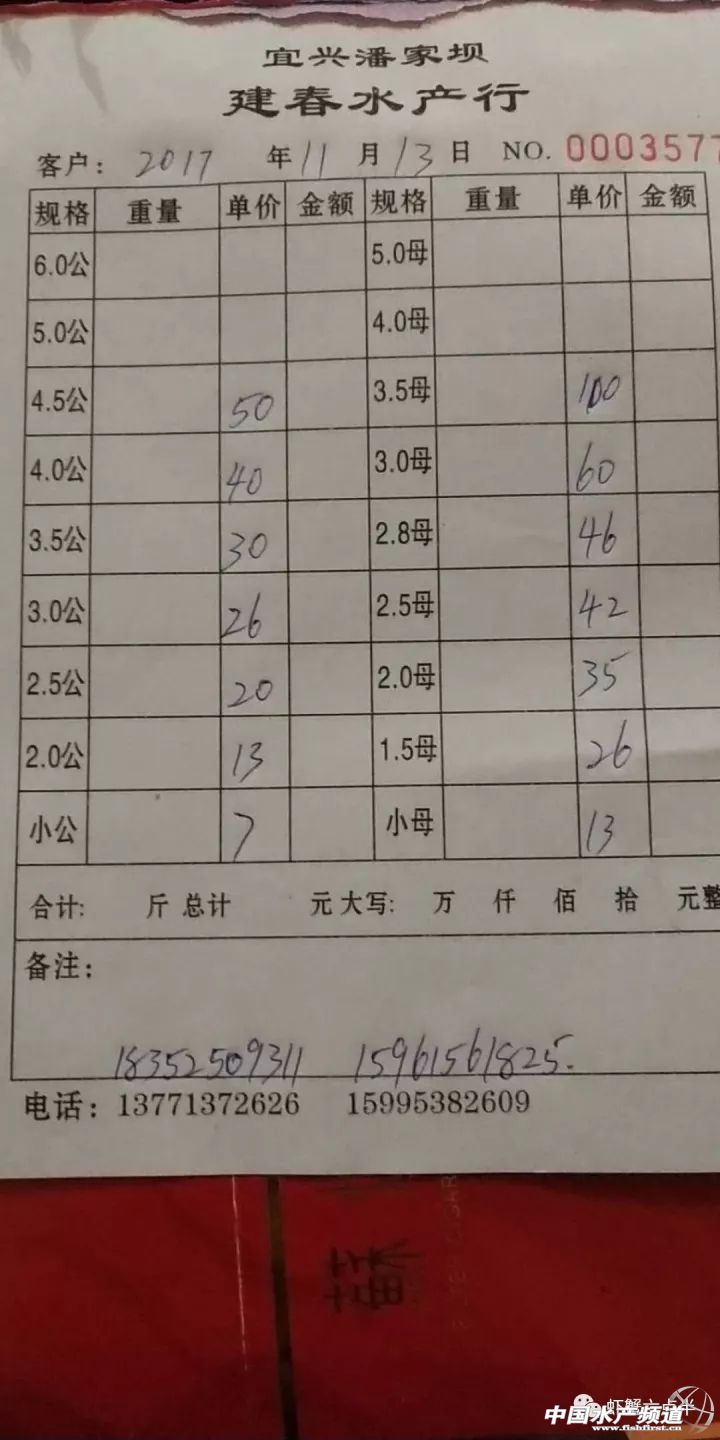 宜兴潘家坝
建春水产行
客户: 2017 年 11 月 13 日 NO. 0003577
规格 重量 单价 金额 规格 重量 单价 金额
6.0公 5.0母
5.0公 4.0母
4.5公 50 3.5母 100
4.0公 40 3.0母 60
3.5公 30 2.8母 46
3.0公 26 2.5母 42
2.5公 20 2.0母 35
2.0公 13 1.5母 26
小公 7 小母 13
合计: 斤 总计 元 大写: 万 仟 佰 拾 元整
备注:
18352509311 15961561825.
电话: 13771372626 15995382609
虾蟹六点半
中国水产频道
www.fishfirst.cn